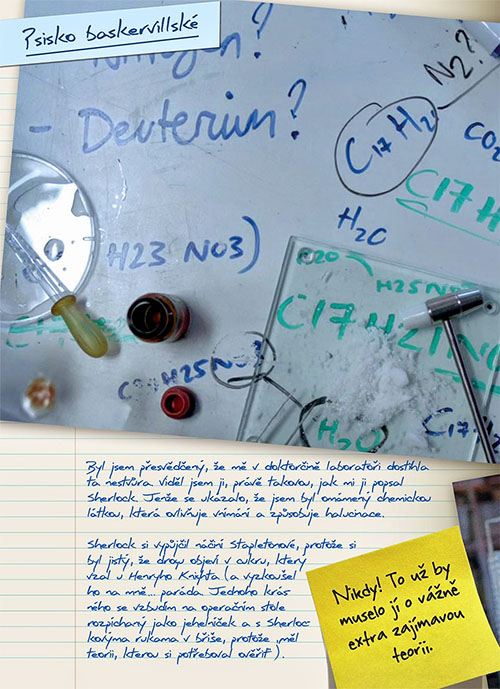 Psisko baskervillské
Nitrogen?
- Deuterium?
N2?
C17 H2
CO2
C17 H
H2O
H23 NO3)
H25NO3
C17 H21NO
H25NO3
H2O
C17
Byl jsem přesvědčený, že mě v doktorčině laboratoři dostihla
ta nestvůra. Viděl jsem ji, právě takovou, jak mi ji popsal
Sherlock. Jenže se ukázalo, že jsem byl omámený chemickou
látkou, která ovlivňuje vnímání a způsobuje halucinace.
Sherlock si vypůjčil náčiní Stapletonové, protože si
byl jistý, že drogu objeví v cukru, který
vzal u Henryho Knighta (a vyzkoušel
ho na mně... paráda. Jednoho krás
ného se vzbudím na operačním stole
rozpíchaný jako jehelníček a s Sherloc
kovýma rukama v břiše, protože „měl
teorii, kterou si potřeboval ověřit“).
Nikdy! To už by
muselo jí o vážně
extra zajímavou
teorii.